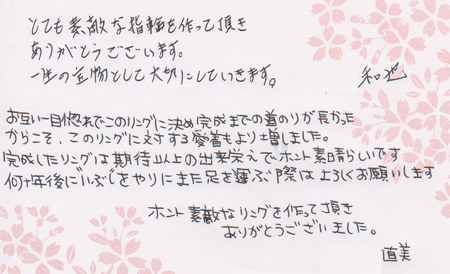 とても素敵な指輪を作って頂き
ありがとうございます。
一生の宝物として大切にしていきます。
和也
お互い一目惚れでこのリングに決め完成までの道のりが長かった
からこそ、このリングに対する愛着もより増しました。
完成したリングは期待以上の出来栄えで、ホント素晴らしいです
何十年後にいぶしをやりにまた足を運ぶ際はよろしくお願いします
ホント素敵なリングを作って頂き
ありがとうございました。
直美